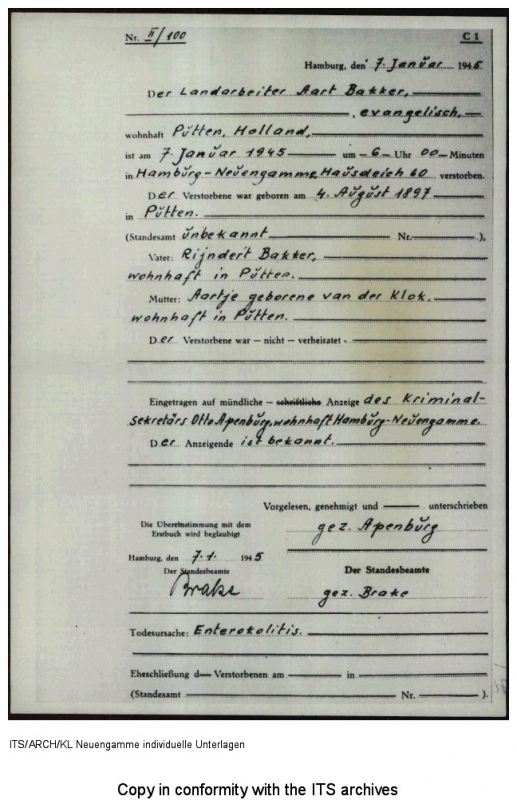 Nr. II/100 C 1
Hamburg, den 7. Januar 1945
Der Landarbeiter Aart Bakker,
, evangelisch,
wohnhaft Putten, Holland,
ist am 7. Januar 1945 um 6 Uhr 00 Minuten
in Hamburg-Neuengamme, Hausdeich 60 verstorben.
Der Verstorbene war geboren am 4. August 1897
in Putten.
(Standesamt unbekannt Nr. ),
Vater: Rijndert Bakker,
wohnhaft in Putten.
Mutter: Aartje geborene van der Klok,
wohnhaft in Putten.
Der Verstorbene war – nicht – verheiratet
Eingetragen auf mündliche – schriftliche Anzeige des Kriminal-
sekretärs Otto Apenburg, wohnhaft Hamburg-Neuengamme.
Der Anzeigende ist bekannt.
Vorgelesen, genehmigt und unterschrieben
gez. Apenburg
Die Übereinstimmung mit dem
Erstbuch wird beglaubigt
Hamburg, den 7.1. 1945
Der Standesbeamte
Brake
Der Standesbeamte
gez. Brake
Todesursache: Enterokolitis.
Eheschließung d Verstorbenen am in
(Standesamt Nr. ).
ITS/ARCH/KL Neuengamme individuelle Unterlagen
Copy in conformity with the ITS archives